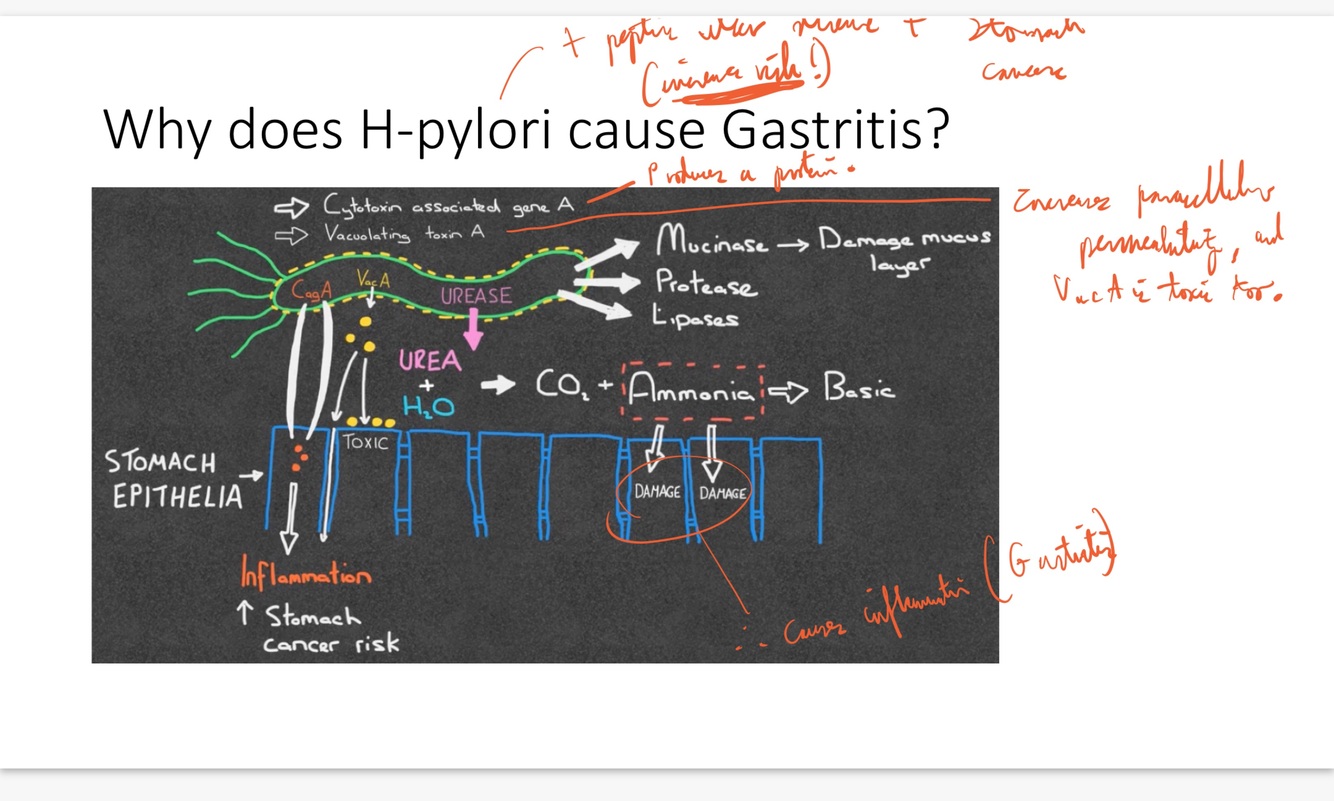 + peptic ulcer disease + Stomach
(increase risk!) cancer
Why does H-pylori cause Gastritis?
Produces a protein.
⇨ Cytotoxin associated gene A
⇨ Vacuolating toxin A
Increases paracellular
permeability, and
VacA is toxic too.
Mucinase → Damage mucus
layer
Protease
Lipases
CagA VacA UREASE
UREA
+
H₂O
→ CO₂ + Ammonia ⇨ Basic
TOXIC
STOMACH
EPITHELIA →
DAMAGE DAMAGE
Inflammation
↑ Stomach
cancer risk
∴ causes inflammation (Gastritis)